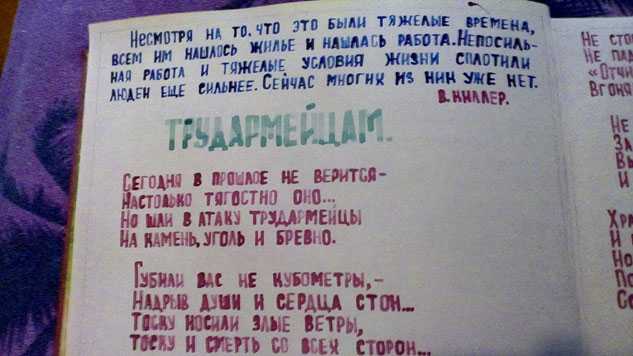 Несмотря на то, что это были тяжелые времена,
всем им нашлось жилье и нашлась работа. Непосиль-
ная работа и тяжелые условия жизни сплотили
людей еще сильнее. Сейчас многих из них уже нет.
В. Киллер.
ТРУДАРМЕЙЦАМ.
Сегодня в прошлое не верится–
Настолько тягостно оно...
Но шли в атаку трудармейцы
На камень, уголь и бревно.
Губили вас не кубометры,–
Надрыв души и сердца стон...
Тоску носили злые ветры,
Тоску и смерть со всех сторон...
Не
Не
«Отчи
Вгоня
Не
За
Вы
И
Хра
И
Но
По